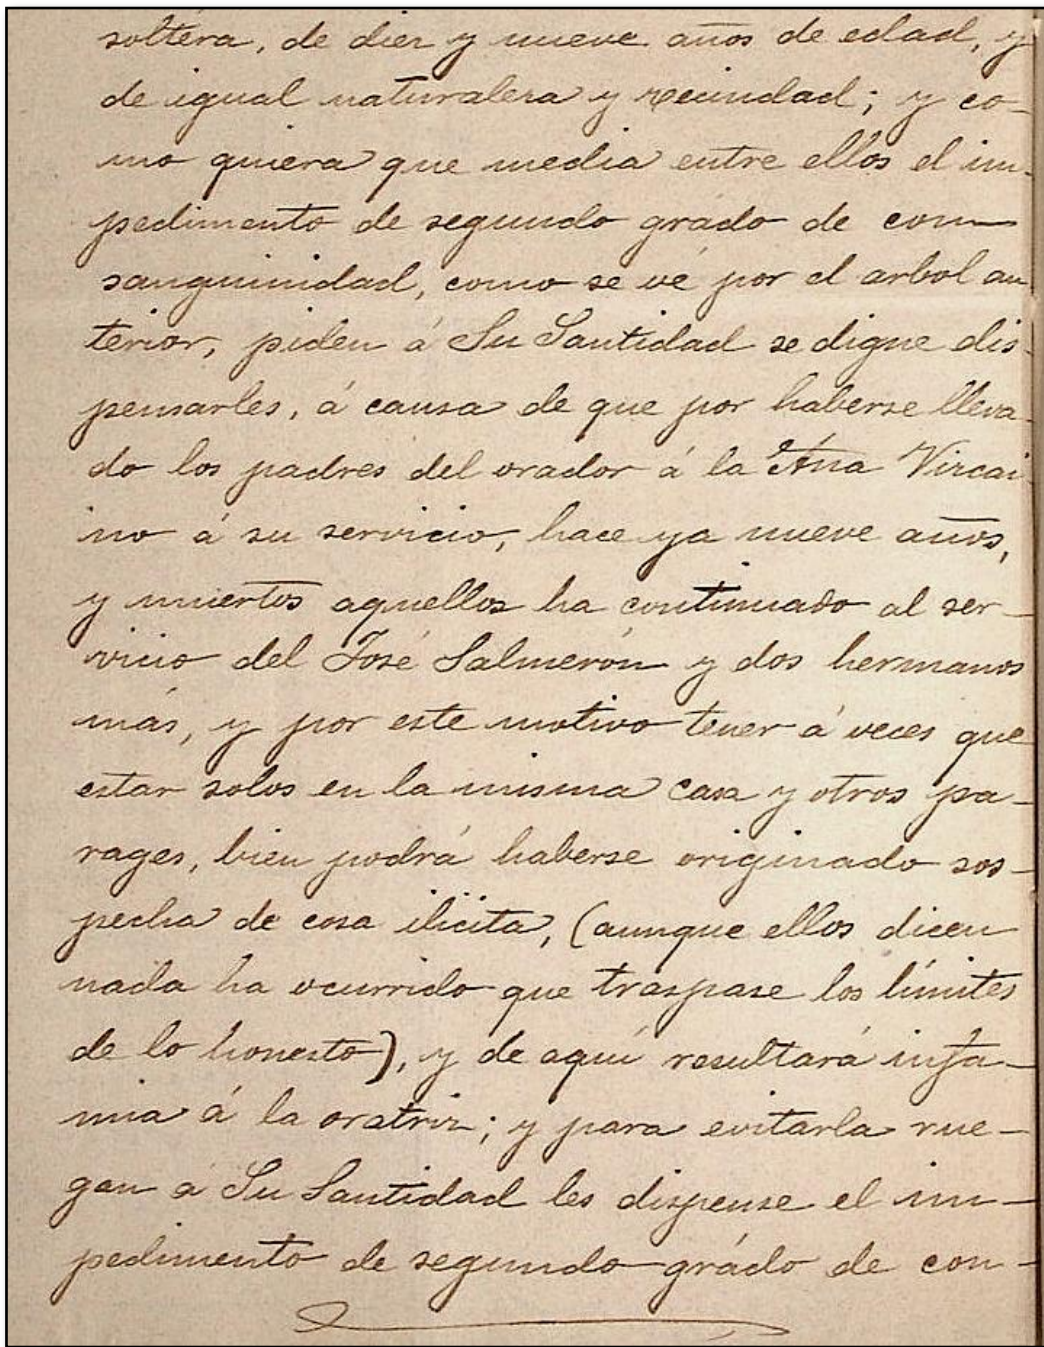 soltera, de diez y nueve años de edad, y
de igual naturaleza y vecindad; y co-
mo quiera que media entre ellos el im-
pedimento de segundo grado de con-
sanguinidad, como se vé por el arbol an
terior, piden á Su Santidad se digne dis-
pensarles, á causa de que por haberse lleva-
do los padres del orador á la Ana Vizcai
no á su servicio, hace ya nueve años,
y muertos aquellos ha continuado al ser-
vicio del José Salmerón y dos hermanos
más, y por este motivo tener á veces que
estar solos en la misma casa y otros pa-
rages, bien podrá haberse originado sos-
pecha de cosa ilicita, (aunque ellos dicen
nada ha ocurrido que traspase los límites
de lo honesto), y de aquí resultará infa-
mia á la oratriz; y para evitarla rue-
gan á Su Santidad les dispense el im-
pedimento de segundo grado de con-